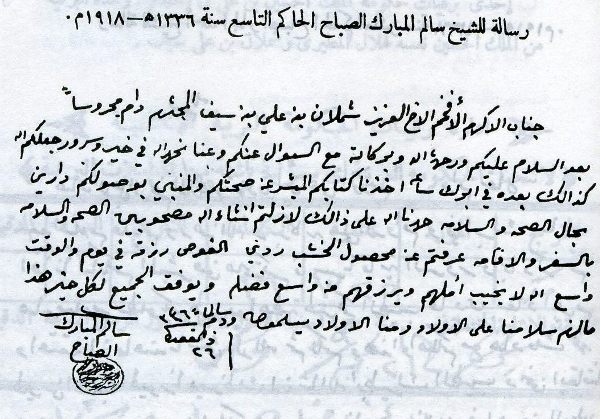 رسالة للشيخ سالم المبارك الصباح الحاكم التاسع سنة ١٣٣٦هـ-١٩١٨م.
جناب الاكرم الأفخم الاخ العزيز شملان بن علي بن سيف المحترم دام محروساً
بعد السلام عليكم ورحمة الله وبركاته مع السؤال عنكم وعنا نحمد الله في خير وسرور جعلكم الله
كذالك بعده في ابرك ساعة اخذنا كتابكم المبشر عن صحتكم والمنبي بوصولكم دارين
بحال الصحه والسلامه حمدنا الله على ذالك لازلتم انشاء الله مصحوبين الصحه والسلامه
بالسفر والاقامه عرفتم عن محصول الخشب ردي الغوص رزقه في يوم والوقت
واسع الله لا يخيب املهم ويرزقهم من واسع فضله ويوفق الجميع لكل خير هذا
مالزم سلامنا على الاولاد ومنا الاولاد يسلمون ودمتم سالمين ١٣٣٦
٢٦ ذالقعدة
سالم المبارك
الصباح